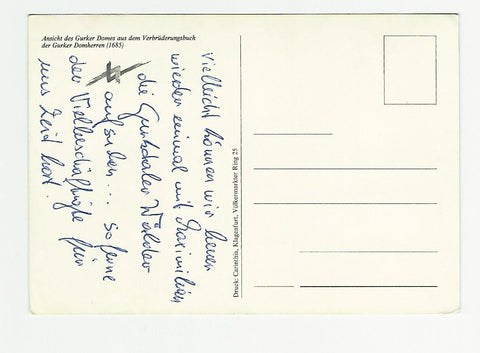 Ansicht des Gurker Domes aus dem Verbrüderungsbuch
der Gurker Domherren (1685)
Vielleicht können wir heuer
wieder einmal mit Maximilian
die Gurktaler Wälder
aufsuchen... soferne
der Vielbeschäftigte für
uns Zeit hat!
Druck: Carinthia, Klagenfurt, Völkermarkter Ring 25